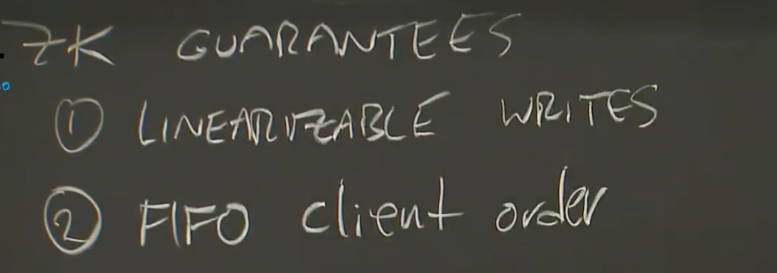 ZK GUARANTEES
① LINEARIZABLE WRITES
② FIFO client order